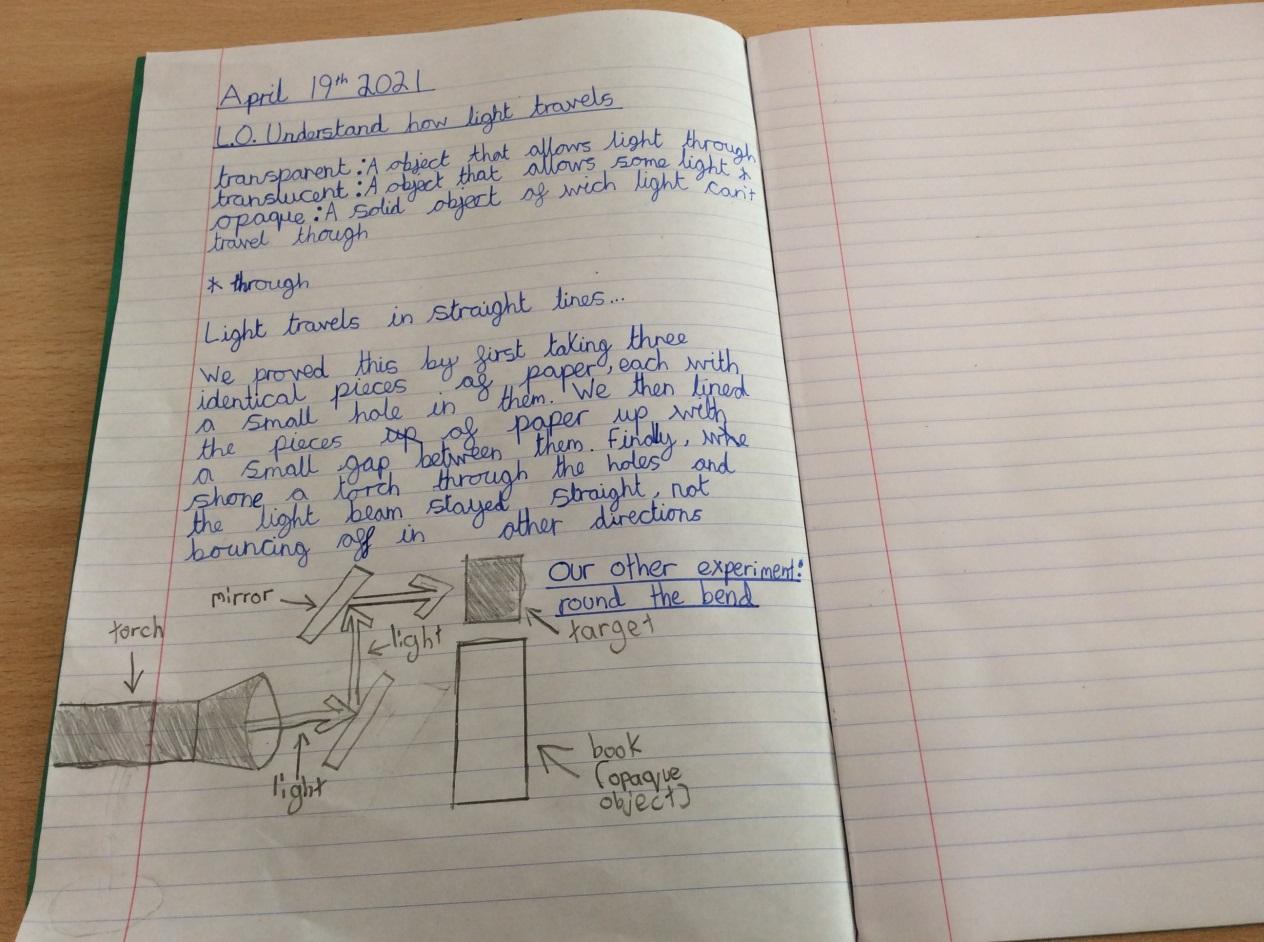 April 19th 2021
L.O. Understand how light travels
transparent : A object that allows light through
translucent : A object that allows some light *
opaque : A solid object of wich light can't
travel though
* through
Light travels in straight lines...
We proved this by first taking three
identical pieces of paper, each with
a small hole in them. We then lined
the pieces up of paper up with
a small gap between them. Findly, whe
shone a torch through the holes and
the light beam stayed straight, not
bouncing off in other directions
Our other experiment:
round the bend
mirror
light
target
torch
light
book
(opaque
object)